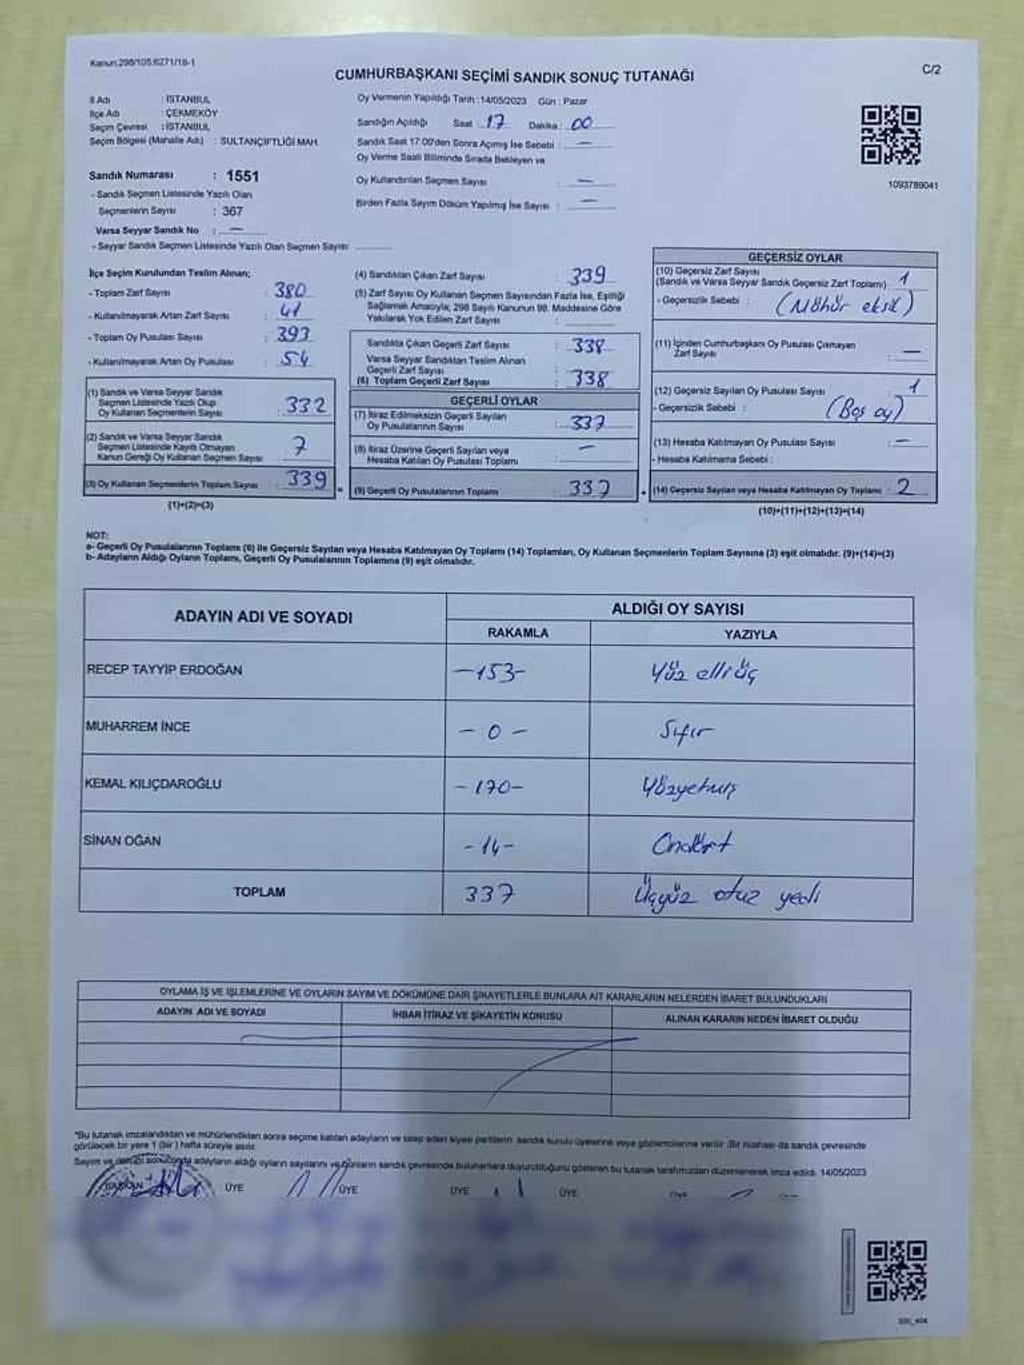 Kanun:298/105.6271/18-1
C/2
CUMHURBAŞKANI SEÇİMİ SANDIK SONUÇ TUTANAĞI
İl Adı : İSTANBUL
İlçe Adı : ÇEKMEKÖY
Seçim Çevresi : İSTANBUL
Seçim Bölgesi (Mahalle Adı) : SULTANÇİFTLİĞİ MAH.
Sandık Numarası : 1551
- Sandık Seçmen Listesinde Yazılı Olan
Seçmenlerin Sayısı : 367
Varsa Seyyar Sandık No : —
- Seyyar Sandık Seçmen Listesinde Yazılı Olan Seçmen Sayısı
Oy Vermenin Yapıldığı Tarih : 14/05/2023 Gün : Pazar
Sandığın Açıldığı Saat : 17 Dakika : 00
Sandık Saat 17:00'den Sonra Açımış İse Sebebi : —
Oy Verme Saati Bitiminde Sırada Bekleyen ve
Oy Kullandırılan Seçmen Sayısı : —
Birden Fazla Sayım Döküm Yapılmış İse Sayısı : —
1093789041
İlçe Seçim Kurulundan Teslim Alınan;
- Toplam Zarf Sayısı : 380
- Kullanılmayarak Artan Zarf Sayısı : 41
- Toplam Oy Pusulası Sayısı : 393
- Kullanılmayarak Artan Oy Pusulası : 54
(1) Sandık ve Varsa Seyyar Sandık
Seçmen Listesinde Yazılı Olup
Oy Kullanan Seçmenlerin Sayısı : 332
(2) Sandık ve Varsa Seyyar Sandık
Seçmen Listesinde Kayıtlı Olmayan
Kanun Gereği Oy Kullanan Seçmen Sayısı : 7
(3) Oy Kullanan Seçmenlerin Toplam Sayısı : 339
(1)+(2)=(3)
(4) Sandıktan Çıkan Zarf Sayısı : 339
(5) Zarf Sayısı Oy Kullanan Seçmen Sayısından Fazla İse, Eşitliği
Sağlamak Amacıyla; 298 Sayılı Kanunun 98. Maddesine Göre
Yakılarak Yok Edilen Zarf Sayısı :
Sandıkta Çıkan Geçerli Zarf Sayısı : 338
Varsa Seyyar Sandıktan Teslim Alınan
Geçerli Zarf Sayısı
(6) Toplam Geçerli Zarf Sayısı : 338
GEÇERLİ OYLAR
(7) İtiraz Edilmeksizin Geçerli Sayılan
Oy Pusulalarının Sayısı : 337
(8) İtiraz Üzerine Geçerli Sayılan veya
Hesaba Katılan Oy Pusulası Toplamı : —
(9) Geçerli Oy Pusulalarının Toplamı : 337
GEÇERSİZ OYLAR
(10) Geçersiz Zarf Sayısı
(Sandık ve Varsa Seyyar Sandık Geçersiz Zarf Toplamı) : 1
- Geçersizlik Sebebi : (Mühür eksik)
(11) İçinden Cumhurbaşkanı Oy Pusulası Çıkmayan
Zarf Sayısı : —
(12) Geçersiz Sayılan Oy Pusulası Sayısı : 1
- Geçersizlik Sebebi : (Boş oy)
(13) Hesaba Katılmayan Oy Pusulası Sayısı : —
- Hesaba Katılmama Sebebi :
(14) Geçersiz Sayılan veya Hesaba Katılmayan Oy Toplamı : 2
(10)+(11)+(12)+(13)=(14)
NOT:
a- Geçerli Oy Pusulalarının Toplamı (9) ile Geçersiz Sayılan veya Hesaba Katılmayan Oy Toplamı (14) Toplamları, Oy Kullanan Seçmenlerin Toplam Sayısına (3) eşit olmalıdır. (9)+(14)=(3)
b- Adayların Aldığı Oyların Toplamı, Geçerli Oy Pusulalarının Toplamına (9) eşit olmalıdır.
ADAYIN ADI VE SOYADI
ALDIĞI OY SAYISI
RAKAMLA YAZIYLA
RECEP TAYYİP ERDOĞAN -153- Yüz elli üç
MUHARREM İNCE - 0 - Sıfır
KEMAL KILIÇDAROĞLU -170- Yüzyetmiş
SİNAN OĞAN -14- Ondört
TOPLAM 337 Üçyüz otuz yedi
OYLAMA İŞ VE İŞLEMLERİNE VE OYLARIN SAYIM VE DÖKÜMÜNE DAİR ŞİKAYETLERLE BUNLARA AİT KARARLARIN NELERDEN İBARET BULUNDUKLARI
ADAYIN ADI VE SOYADI İHBAR İTİRAZ VE ŞİKAYETİN KONUSU ALINAN KARARIN NEDEN İBARET OLDUĞU
*Bu tutanak imzalandıktan ve mühürlendikten sonra seçime katılan adayların ve talep eden siyasi partilerin sandık kurulu üyelerine veya gözlemcilerine verilir .Bir nüshası da sandık çevresinde
görülecek bir yere 1 (bir ) hafta süreyle asılır.
Sayım ve döküm sonucunda adayların aldığı oyların sayılarını ve bunların sandık çevresinde bulunanlara duyurulduğunu gösteren bu tutanak tarafımızdan düzenlenerek imza edildi. 14/05/2023
BAŞKAN ÜYE ÜYE ÜYE ÜYE ÜYE